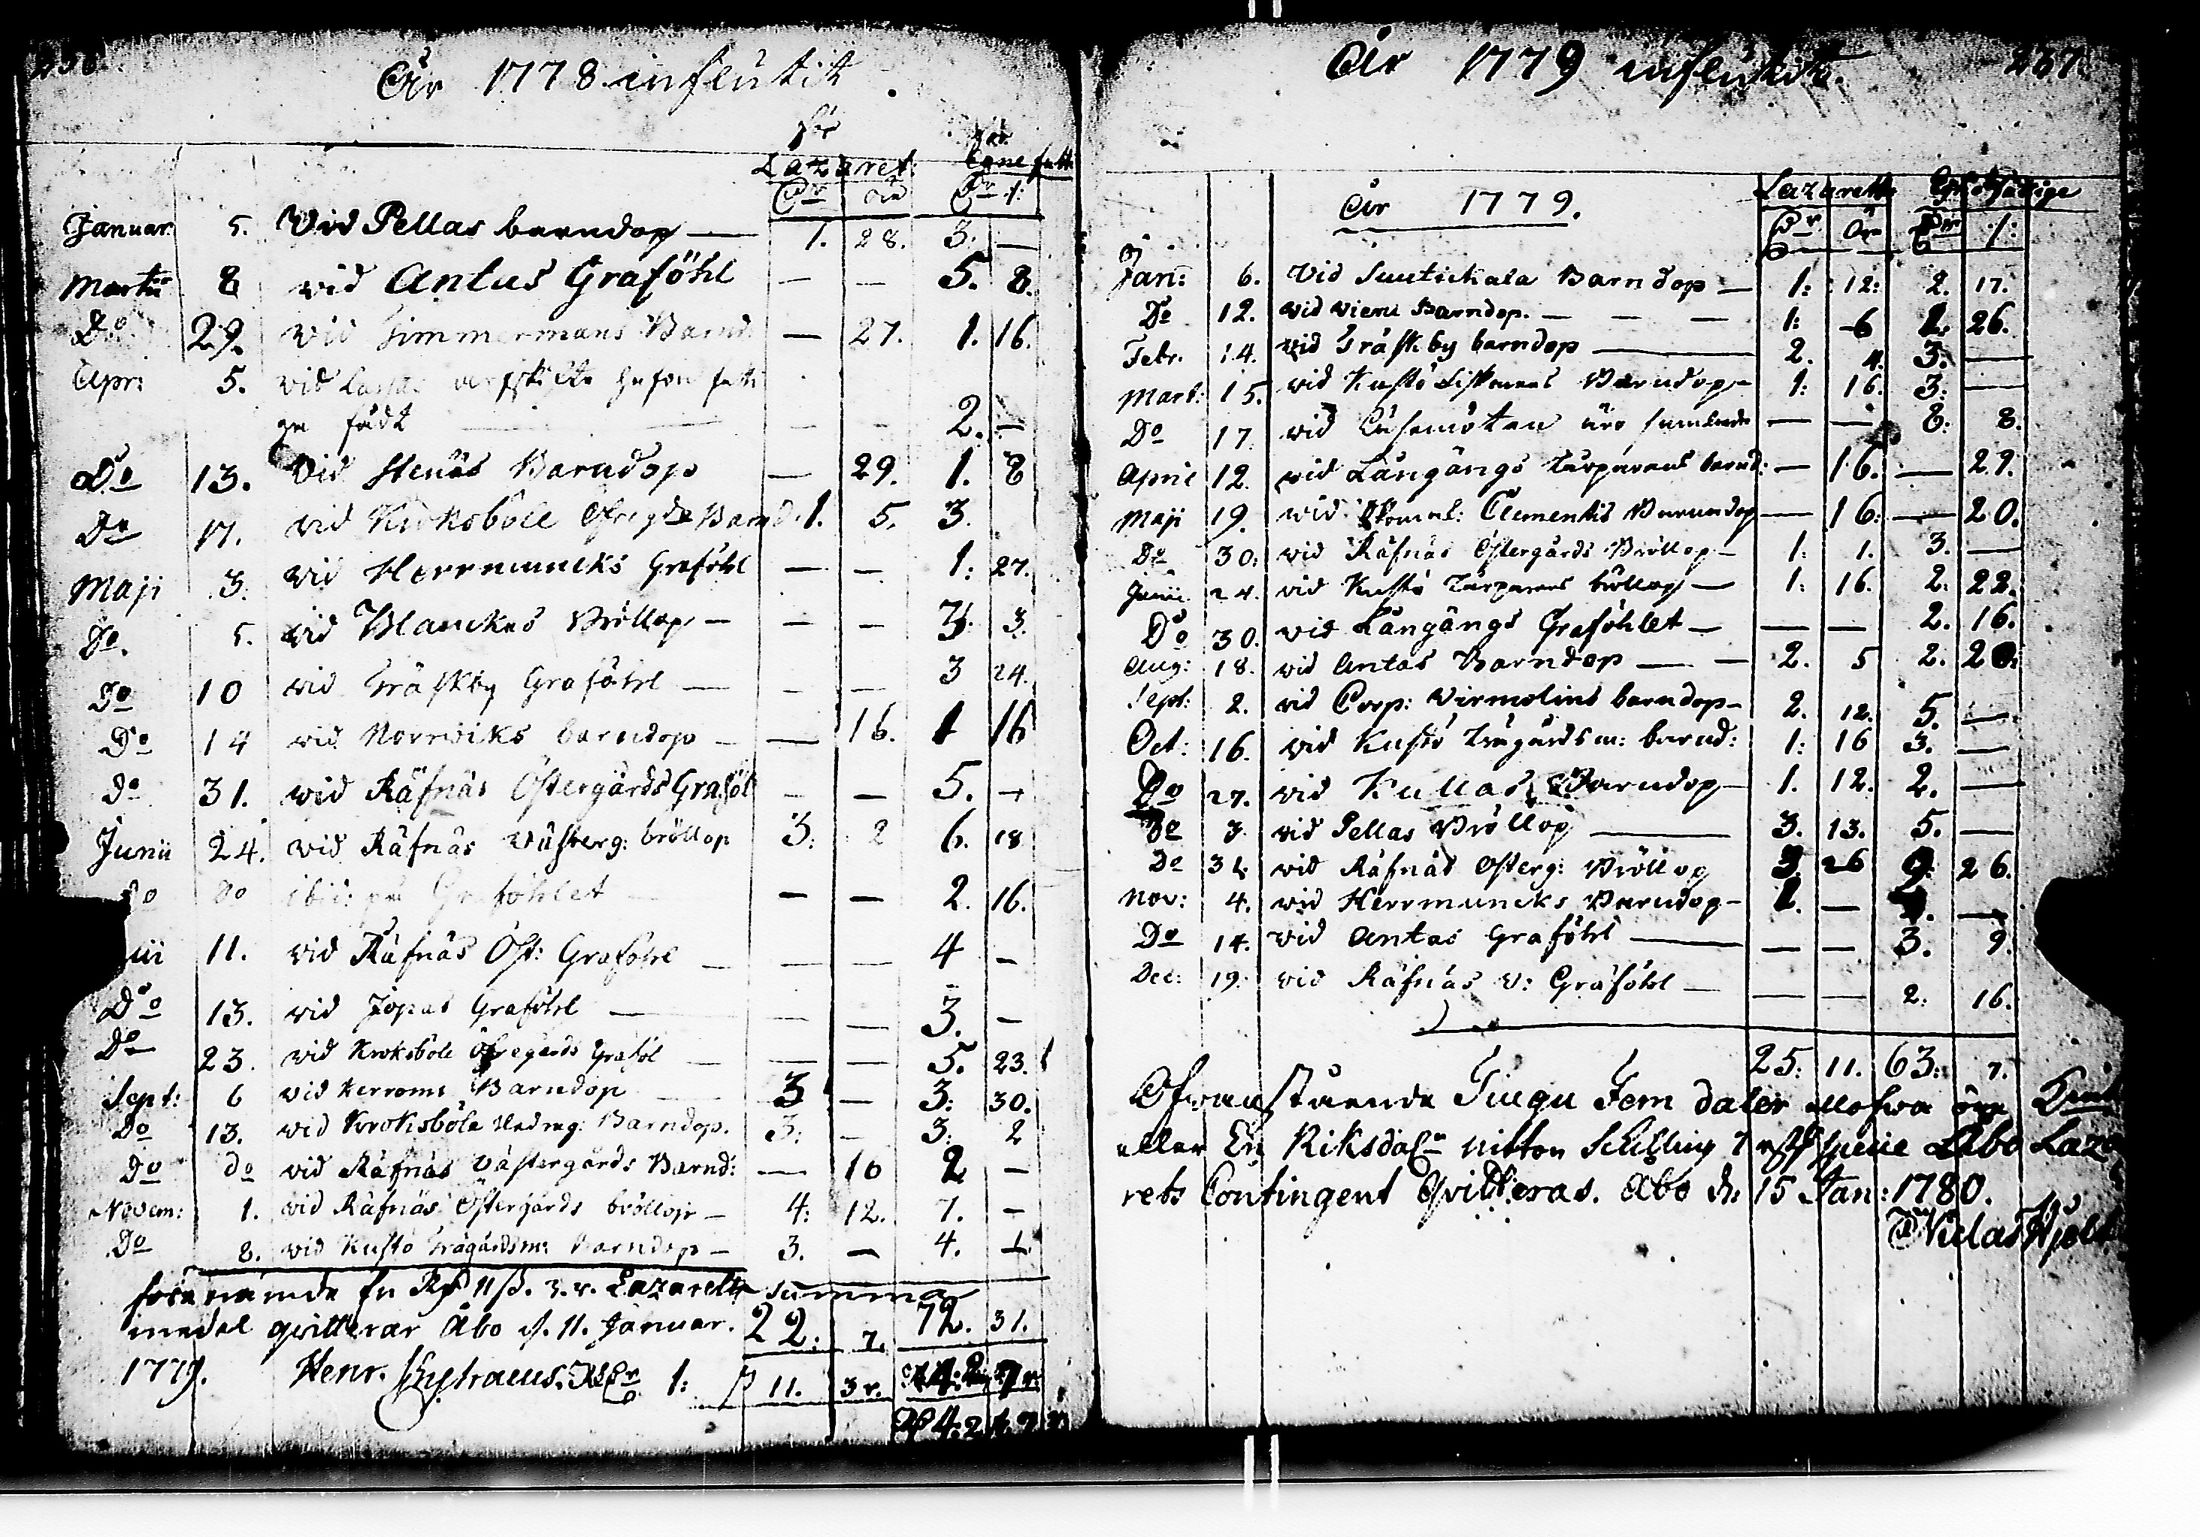 År 1778 influtit
för för
Lazaret: Egne fatt:
Dr ör Dr /:
Januar. 5. Vid Pellas barndop — 1. 28. 3. —
Martii 8 vid Antus Graföhl — — 5. 8.
Do 29. vid Timmermans Barnd. — 27. 1. 16.
Apri 5. vid Lassas
2. —
Do 13. Vid Stenås Barndop — 29. 1. 8
Do 17. vid Kroksböle Öfregds Barnd: 1. 5. 3.
Maji 3. vid Herrmuncks Graföhl — — 1: 27.
Do. 5. vid Blanckas Bröllop — — — 3. 3.
Do 10 vid Träskby Graföhl — — — 3 24.
Do 14 vid Norrwiks barndop — — 16. 1 16
Do 31. vid Räfnäs Östergårds Graföl — — 5. —
Junii 24. vid Räfnäs Västerg: bröllop 3: 2 6. 18
Do do ibid: på Graföhlet — — 2. 16.
11. vid Räfnäs Öst: Graföhl — — — 4 —
Do 13. vid Jopas Graföhl — — — 3. —
Do 23. vid Kroksböle Öfregårds Graföl — — — 5. 23.
Sept: 6 vid Kerroms Barndop — 3 — 3: 30.
Do 13. vid Kroksböle Nedreg: Barndop. 3: — 3: 2
Do do vid Räfnäs Västergårds Barnd: — 10 2 —
Novem: 1. vid Räfnäs Östergårds bröllop — 4: 12. 7. —
Do 8. vid Kustö Trägårdsm: Barndop — 3. — 4. 1.
förenämde En Rd 11 ß. 3. r. Lazaretts Summa
medel qvitterar Åbo d. 11. Januar. 22: 7. 72. 31.
1779. Henr. 1: ß 11. 3 r.
År 1779 influtit. 257
År 1779. Lazaretts
Dr ör Dr /:
Jan: 6. Vid Suutickala Barndop — 1: 12: 2. 17.
Do 12. vid Vieru Barndop. — — — 1: 6 1. 26.
Febr. 14. vid Träskby barndop — 2. 4. 3. —
Mart: 15. vid Kustö Fiskarens Barndop — 1: 16. 3: —
Do 17. vid Husemöten — — 8: 8:
April 12. vid Långångs Torparens barnd: — 16. — 29.
Maji 19. vid Skomak: Clementis Barundop — 16: — 20.
Do 30: vid Räfnäs Östergårds Bröllop — 1: 1. 3. —
Junii 24. vid Kustö Torparens bröllop — 1: 16. 2: 22.
Do 30. vid Långångs Graföhlet — — — 2. 16.
Aug: 18. vid Antas Barndop — — 2. 5 2. 20.
Sept: 2. vid Corp: Virmolins barndop — 2. 12. 5. —
Oct: 16. vid Kustö Trägårdsm: barnd: 1: 16 3. —
Do 27. vid Kullas Barndop — 1. 12. 2. —
Do 3 vid Pellas Bröllop — 3. 13. 5. —
Do 31. vid Räfnäs Österg: Bröllop 3. 26 9. 26.
Nov: 4. vid Herrmuncks Barndop — 1. — —
Do 14. vid Antas Graföhl — — — 3. 9.
Dec: 19. vid Räfnäs V: Graföhl — — — 2: 16.
25: 11. 63: 7.
Ofvanstående Tiugu Fem daler ellofva öre
eller En Riksdaler nitton Schilling 7 Åbo Laza
rets Contingent Qvitteras. Åbo d: 15 Jan: 1780.
Niclas